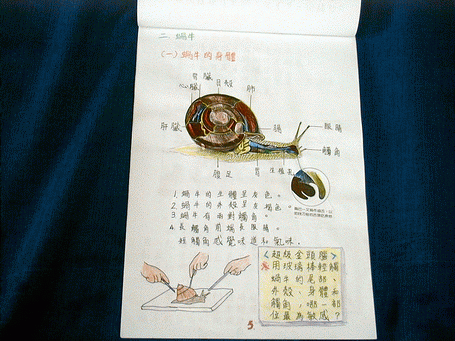 二、蝸牛
(一)蝸牛的身體
胃臟
心臟
貝殼
肺
肝臟
腸
眼睛
觸角
腹足
胃
生殖孔
1. 蝸牛的主體呈灰色。
2. 蝸牛的外殼呈褐色。
3. 蝸牛有兩對觸角。
4. 長觸角用端長眼睛,
短觸角感覺味道和氣味。
<超級金頭腦>
用玻璃棒輕觸
蝸牛的尾部、
外殼、身體和
觸角,哪一部
位最為敏感?
5.